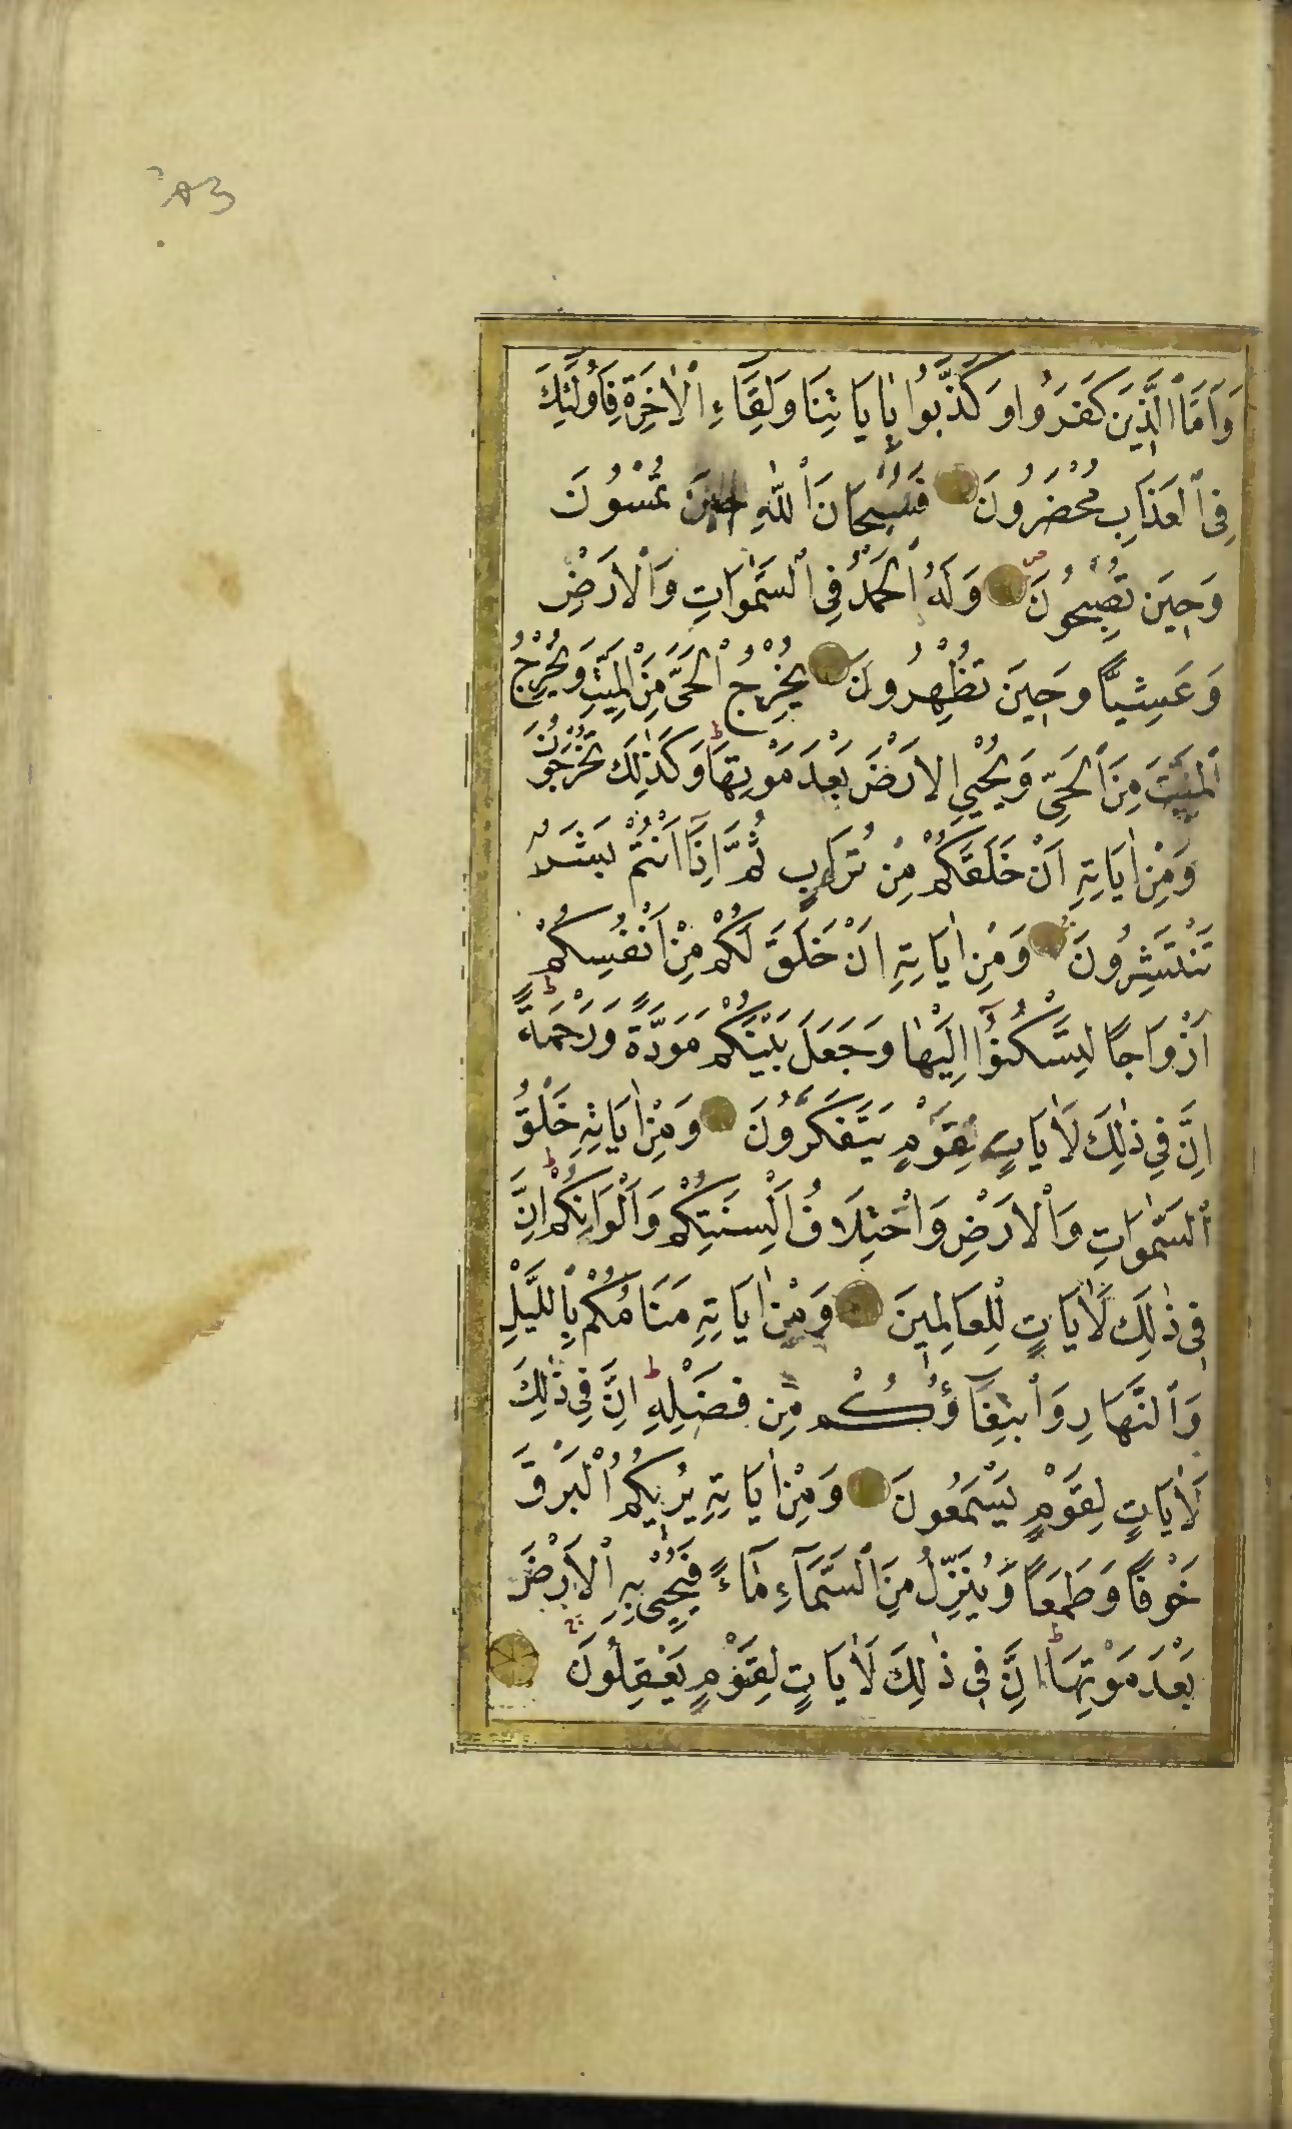 وَاَمَّا الَّذِينَ كَفَرُوا وَكَذَّبُوا بِاٰيَاتِنَا وَلِقَآءِ الْاٰخِرَةِ فَاُولٰٓئِكَ
فِي الْعَذَابِ مُحْضَرُونَ فَسُبْحَانَ اللّٰهِ حِينَ تُمْسُونَ
وَحِينَ تُصْبِحُونَ وَلَهُ الْحَمْدُ فِي السَّمٰوَاتِ وَالْاَرْضِ
وَعَشِيًّا وَحِينَ تُظْهِرُونَ يُخْرِجُ الْحَيَّ مِنَ الْمَيِّتِ وَيُخْرِجُ
الْمَيِّتَ مِنَ الْحَيِّ وَيُحْيِي الْاَرْضَ بَعْدَ مَوْتِهَا وَكَذٰلِكَ تُخْرَجُونَ
وَمِنْ اٰيَاتِهِ اَنْ خَلَقَكُمْ مِنْ تُرَابٍ ثُمَّ اِذَا اَنْتُمْ بَشَرٌ
تَنْتَشِرُونَ وَمِنْ اٰيَاتِهِ اَنْ خَلَقَ لَكُمْ مِنْ اَنْفُسِكُمْ
اَزْوَاجًا لِتَسْكُنُوٓا اِلَيْهَا وَجَعَلَ بَيْنَكُمْ مَوَدَّةً وَرَحْمَةً
اِنَّ فِي ذٰلِكَ لَاٰيَاتٍ لِقَوْمٍ يَتَفَكَّرُونَ وَمِنْ اٰيَاتِهِ خَلْقُ
السَّمٰوَاتِ وَالْاَرْضِ وَاخْتِلَافُ اَلْسِنَتِكُمْ وَاَلْوَانِكُمْ اِنَّ
فِي ذٰلِكَ لَاٰيَاتٍ لِلْعَالِمِينَ وَمِنْ اٰيَاتِهِ مَنَامُكُمْ بِاللَّيْلِ
وَالنَّهَارِ وَابْتِغَآؤُكُمْ مِنْ فَضْلِهِ اِنَّ فِي ذٰلِكَ
لَاٰيَاتٍ لِقَوْمٍ يَسْمَعُونَ وَمِنْ اٰيَاتِهِ يُرِيكُمُ الْبَرْقَ
خَوْفًا وَطَمَعًا وَيُنَزِّلُ مِنَ السَّمَآءِ مَآءً فَيُحْيِي بِهِ الْاَرْضَ
بَعْدَ مَوْتِهَا اِنَّ فِي ذٰلِكَ لَاٰيَاتٍ لِقَوْمٍ يَعْقِلُونَ